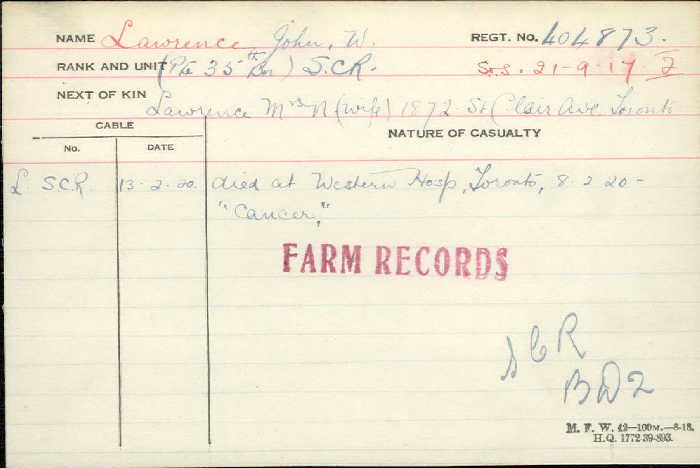 NAME Lawrence John, W. REGT. No. 404873.
RANK AND UNIT (Pte 35th Bn) S.C.R. S.S. 21-9-17
NEXT OF KIN Lawrence Mrs N (wife) 1872 St Clair Ave. Toronto
CABLE NATURE OF CASUALTY
No. DATE
L. SCR. 13-2-20. died at Western Hosp, Toronto, 8 2 20 -
"Cancer,"
FARM RECORDS
SCR
BD2
M. F. W. 42—100M.—8-18.
H.Q. 1772 39-893.